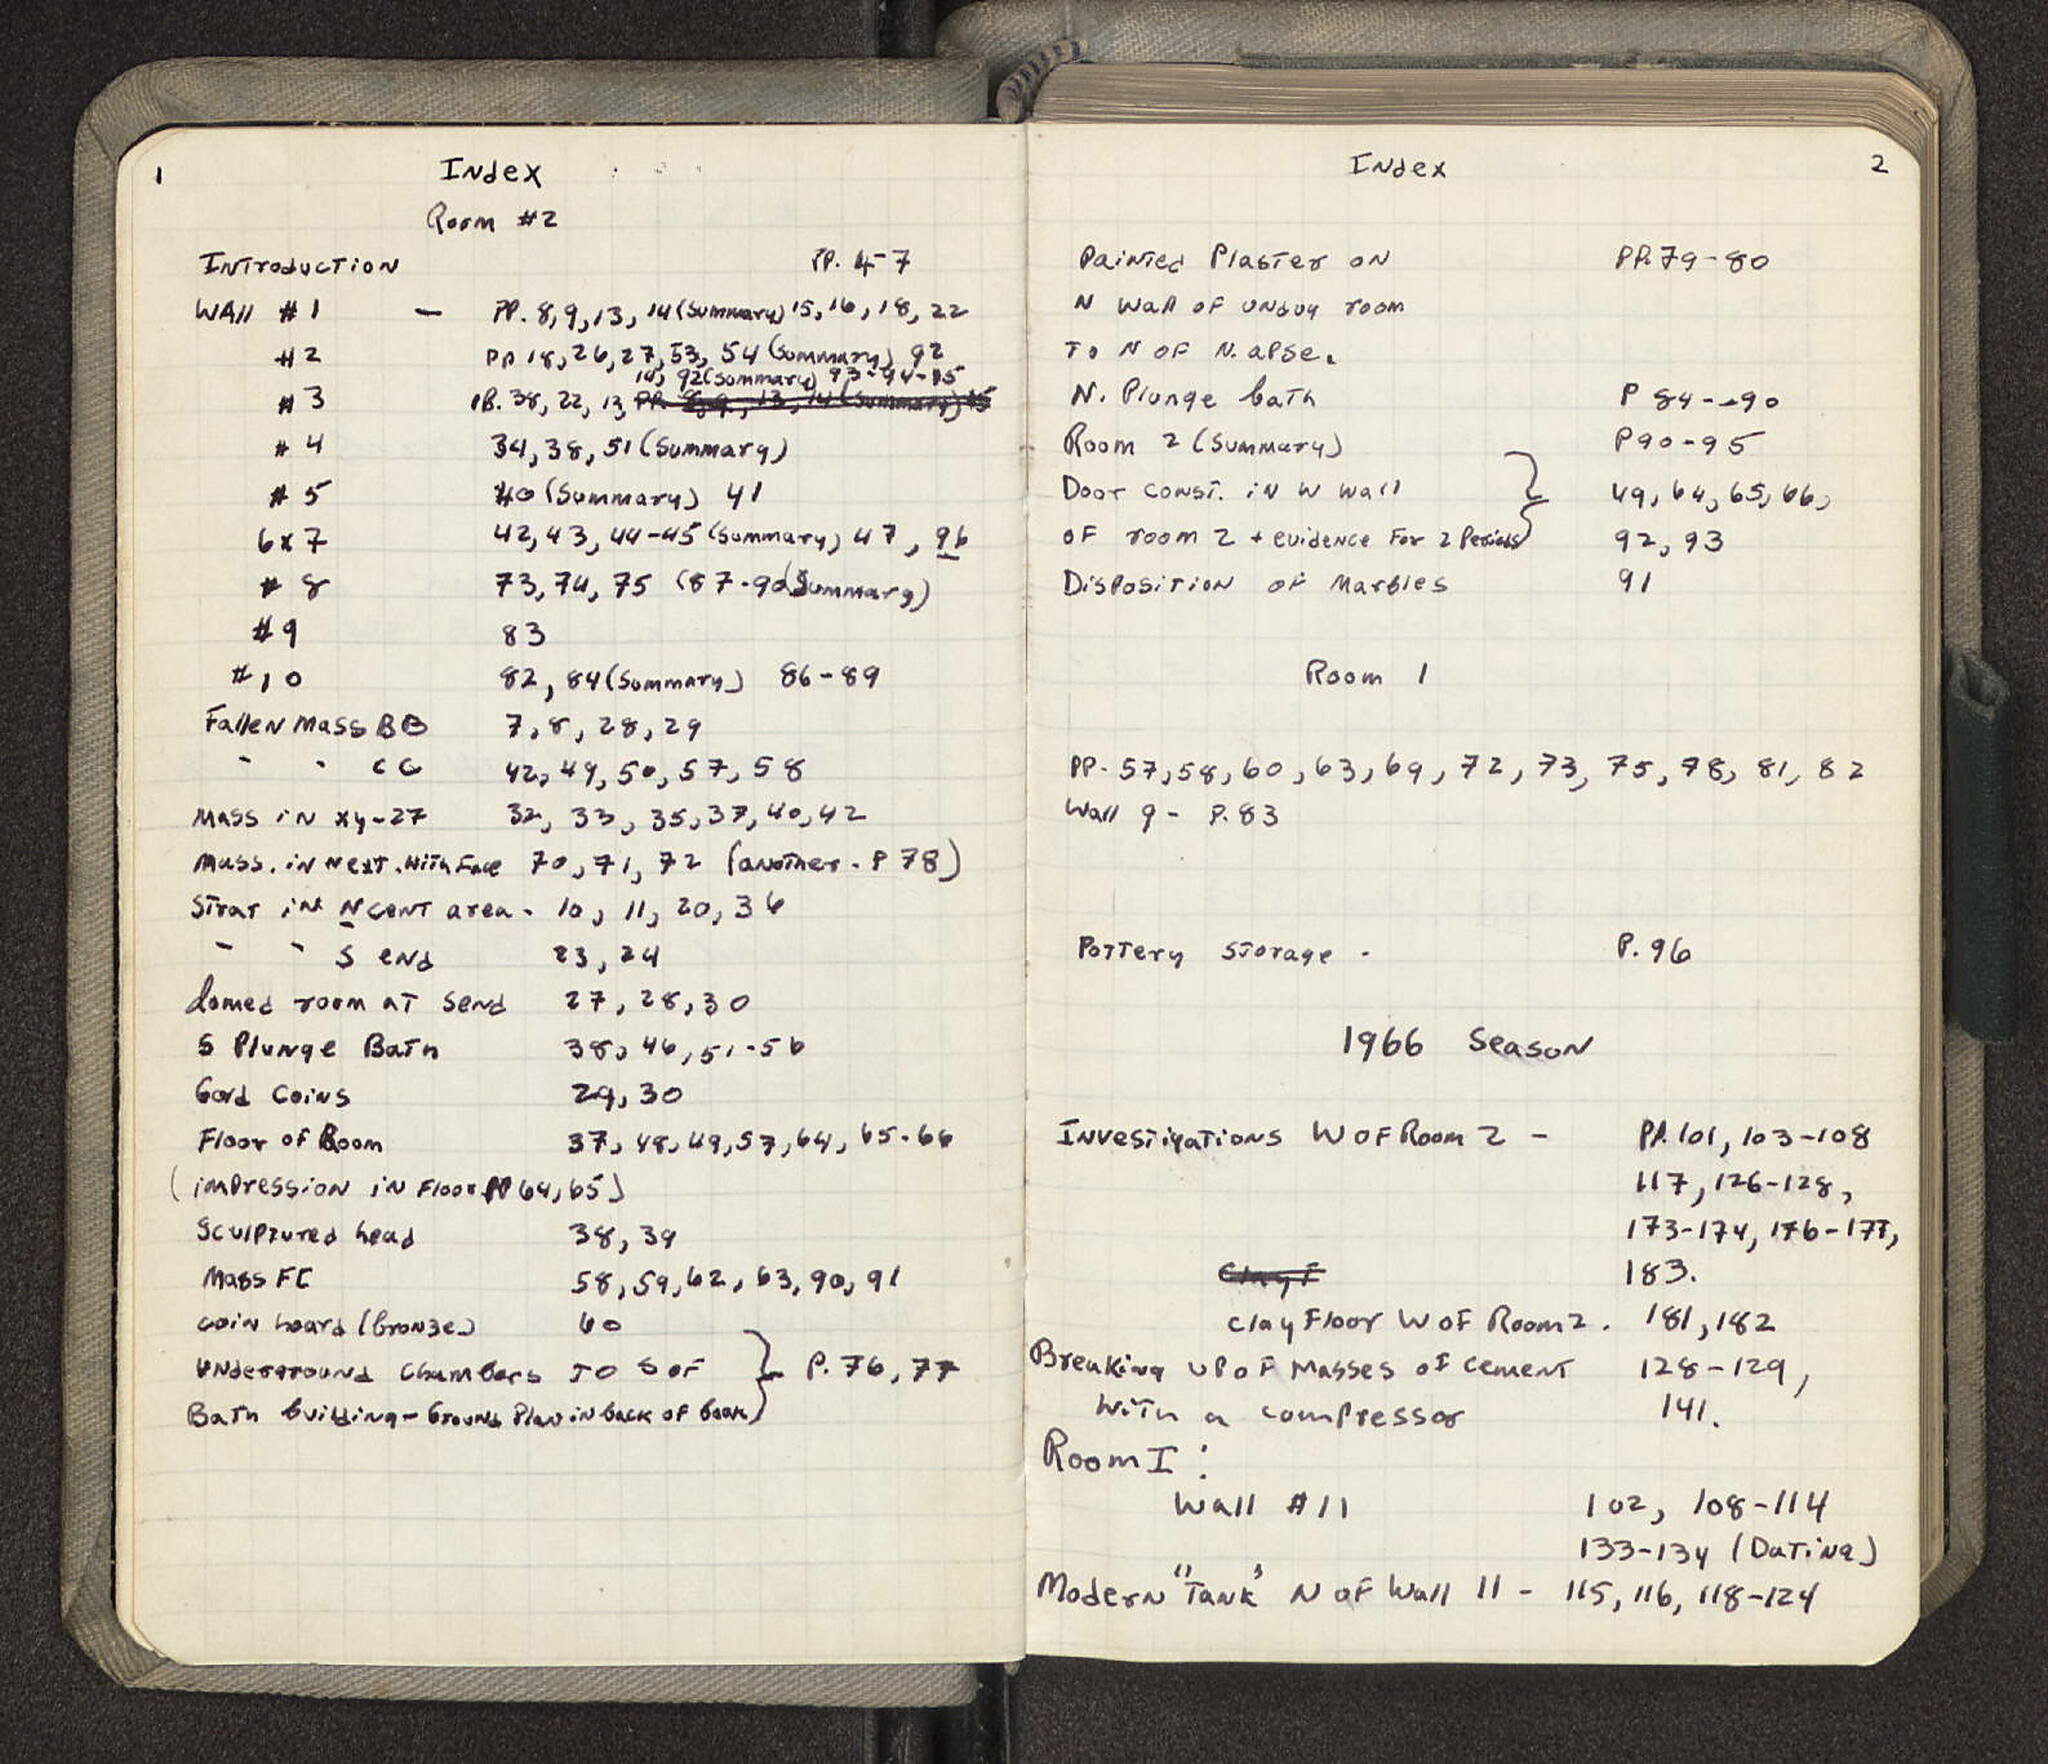 1
Index
Room #2
Introduction PP. 4-7
Wall #1 — PP. 8, 9, 13, 14 (Summary) 15, 16, 18, 22
#2 PP 18, 26, 27, 53, 54 (Summary) 92
14, 92 (Summary) 93-94-95
#3 38, 22, 13,
#4 34, 38, 51 (Summary)
#5 40 (Summary) 41
6x7 42, 43, 44-45 (Summary) 47, 96
#8 73, 74, 75 (87-90 Summary)
#9 83
#10 82, 84 (Summary) 86-89
Fallen Mass BB 7, 8, 28, 29
" " CC 42, 49, 50, 57, 58
Mass in xy-27 32, 33, 35, 37, 40, 42
Mass. in N ext. with Face 70, 71, 72 (another - P 78)
Strat in N cent area - 10, 11, 20, 36
" " S end 23, 24
domed room at S end 27, 28, 30
S Plunge Bath 38, 46, 51-56
Gold Coins 29, 30
Floor of Room 37, 48, 49, 57, 64, 65-66
(impression in Floor PP 64, 65)
Sculptured head 38, 39
Mass FC 58, 59, 62, 63, 90, 91
coin hoard (bronze) 60
Underground Chambers to S of } P. 76, 77
Bath building - Ground Plan in back of book
Index 2
Painted Plaster on PP. 79-80
N wall of undug room
to N of N. apse.
N. Plunge bath P 84-90
Room 2 (Summary) P 90-95
Door const. in W wall 49, 64, 65, 66,
of room 2 + evidence for 2 Periods 92, 93
Disposition of Marbles 91
Room 1
PP. 57, 58, 60, 63, 69, 72, 73, 75, 78, 81, 82
Wall 9 - P. 83
Pottery storage - P. 96
1966 Season
Investigations W of Room 2 - PP. 101, 103-108
117, 126-128,
173-174, 176-177,
Clay F 183.
clay Floor W of Room 2. 181, 182
Breaking up of Masses of cement 128-129,
with a compressor 141.
Room I:
Wall #11 102, 108-114
133-134 (Dating)
Modern "Tank" N of Wall 11 - 115, 116, 118-124